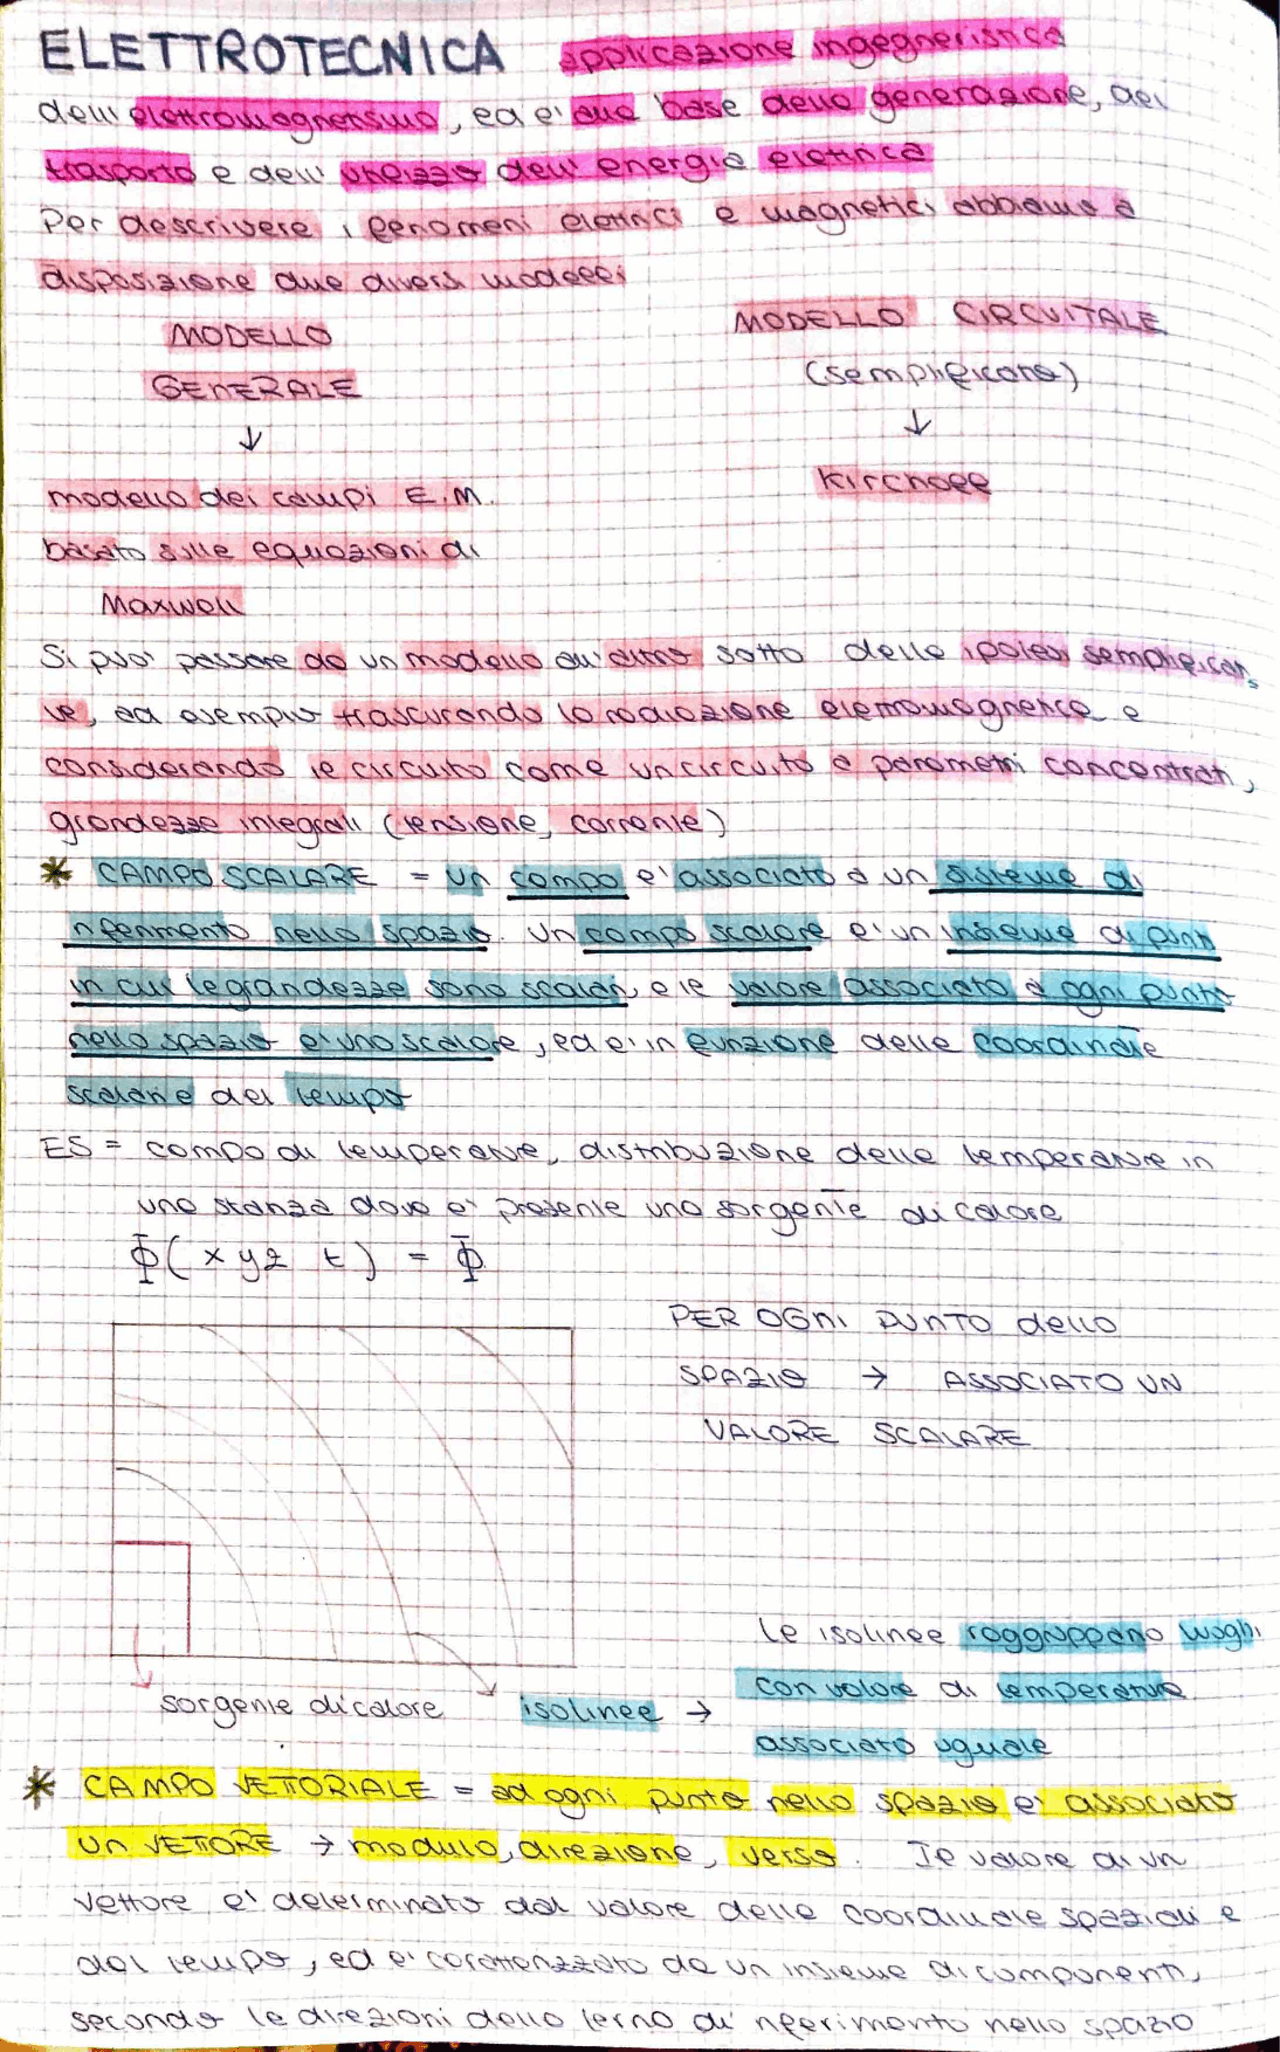 ELETTROTECNICA applicazione ingegneristica
dell'elettromagnetismo, ed e' alla base della generazione, del
trasporto e dell' utilizzo dell' energia elettrica
Per descrivere i fenomeni elettrici e magnetici abbiamo a
disposizione due diversi modelli
MODELLO
GENERALE
↓
modello dei campi E.M.
basato sulle equazioni di
Maxwell
MODELLO CIRCUITALE
(semplificato)
↓
Kirchoff
Si puo' passare da un modello all'altro sotto delle ipotesi semplificati
ve, ad esempio trascurando la radiazione elettromagnetica e
considerando il circuito come un circuito a parametri concentrati,
grandezze integrali (tensione, corrente)
* CAMPO SCALARE = un campo e' associato a un sistema di
riferimento nello spazio. Un campo scalare e' un insieme di punti
in cui le grandezze sono scalari, e il valore associato a ogni punto
nello spazio e' uno scalare, ed e' in funzione delle coordinate
scalari e del tempo
ES = campo di temperature, distribuzione delle temperature in
una stanza dove e' presente una sorgente di calore
Φ(x y z t) = Φ
PER OGNI PUNTO dello
SPAZIO → ASSOCIATO UN
VALORE SCALARE
Le isolinee raggruppano luoghi
con valore di temperatura
associato uguale
sorgente di calore isolinee →
* CAMPO VETTORIALE = ad ogni punto nello spazio e' associato
un VETTORE → modulo, direzione, verso. Il valore di un
vettore e' determinato dal valore delle coordinate spaziali e
dal tempo, ed e' caratterizzato da un insieme di componenti,
secondo le direzioni della terna di riferimento nello spazio